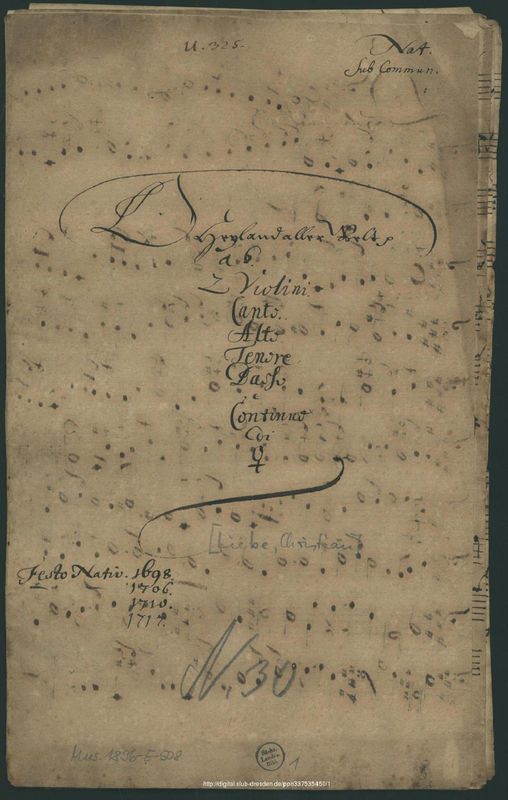 U. 325.
Nat.
Sub Commun.
1
O
Heyland aller Welt
a. 6.
2 Violini.
Canto.
Alto
Tenore
Basso.
e
Continuo
Di
[Liebe, Christian]
Festo Nativ. 1698.
1706.
1710.
1717.
N. 30.
Mus. 1896-E-508
Sächs.
Landes-
Bibl.
1
http://digital.slub-dresden.de/ppn337535450/1